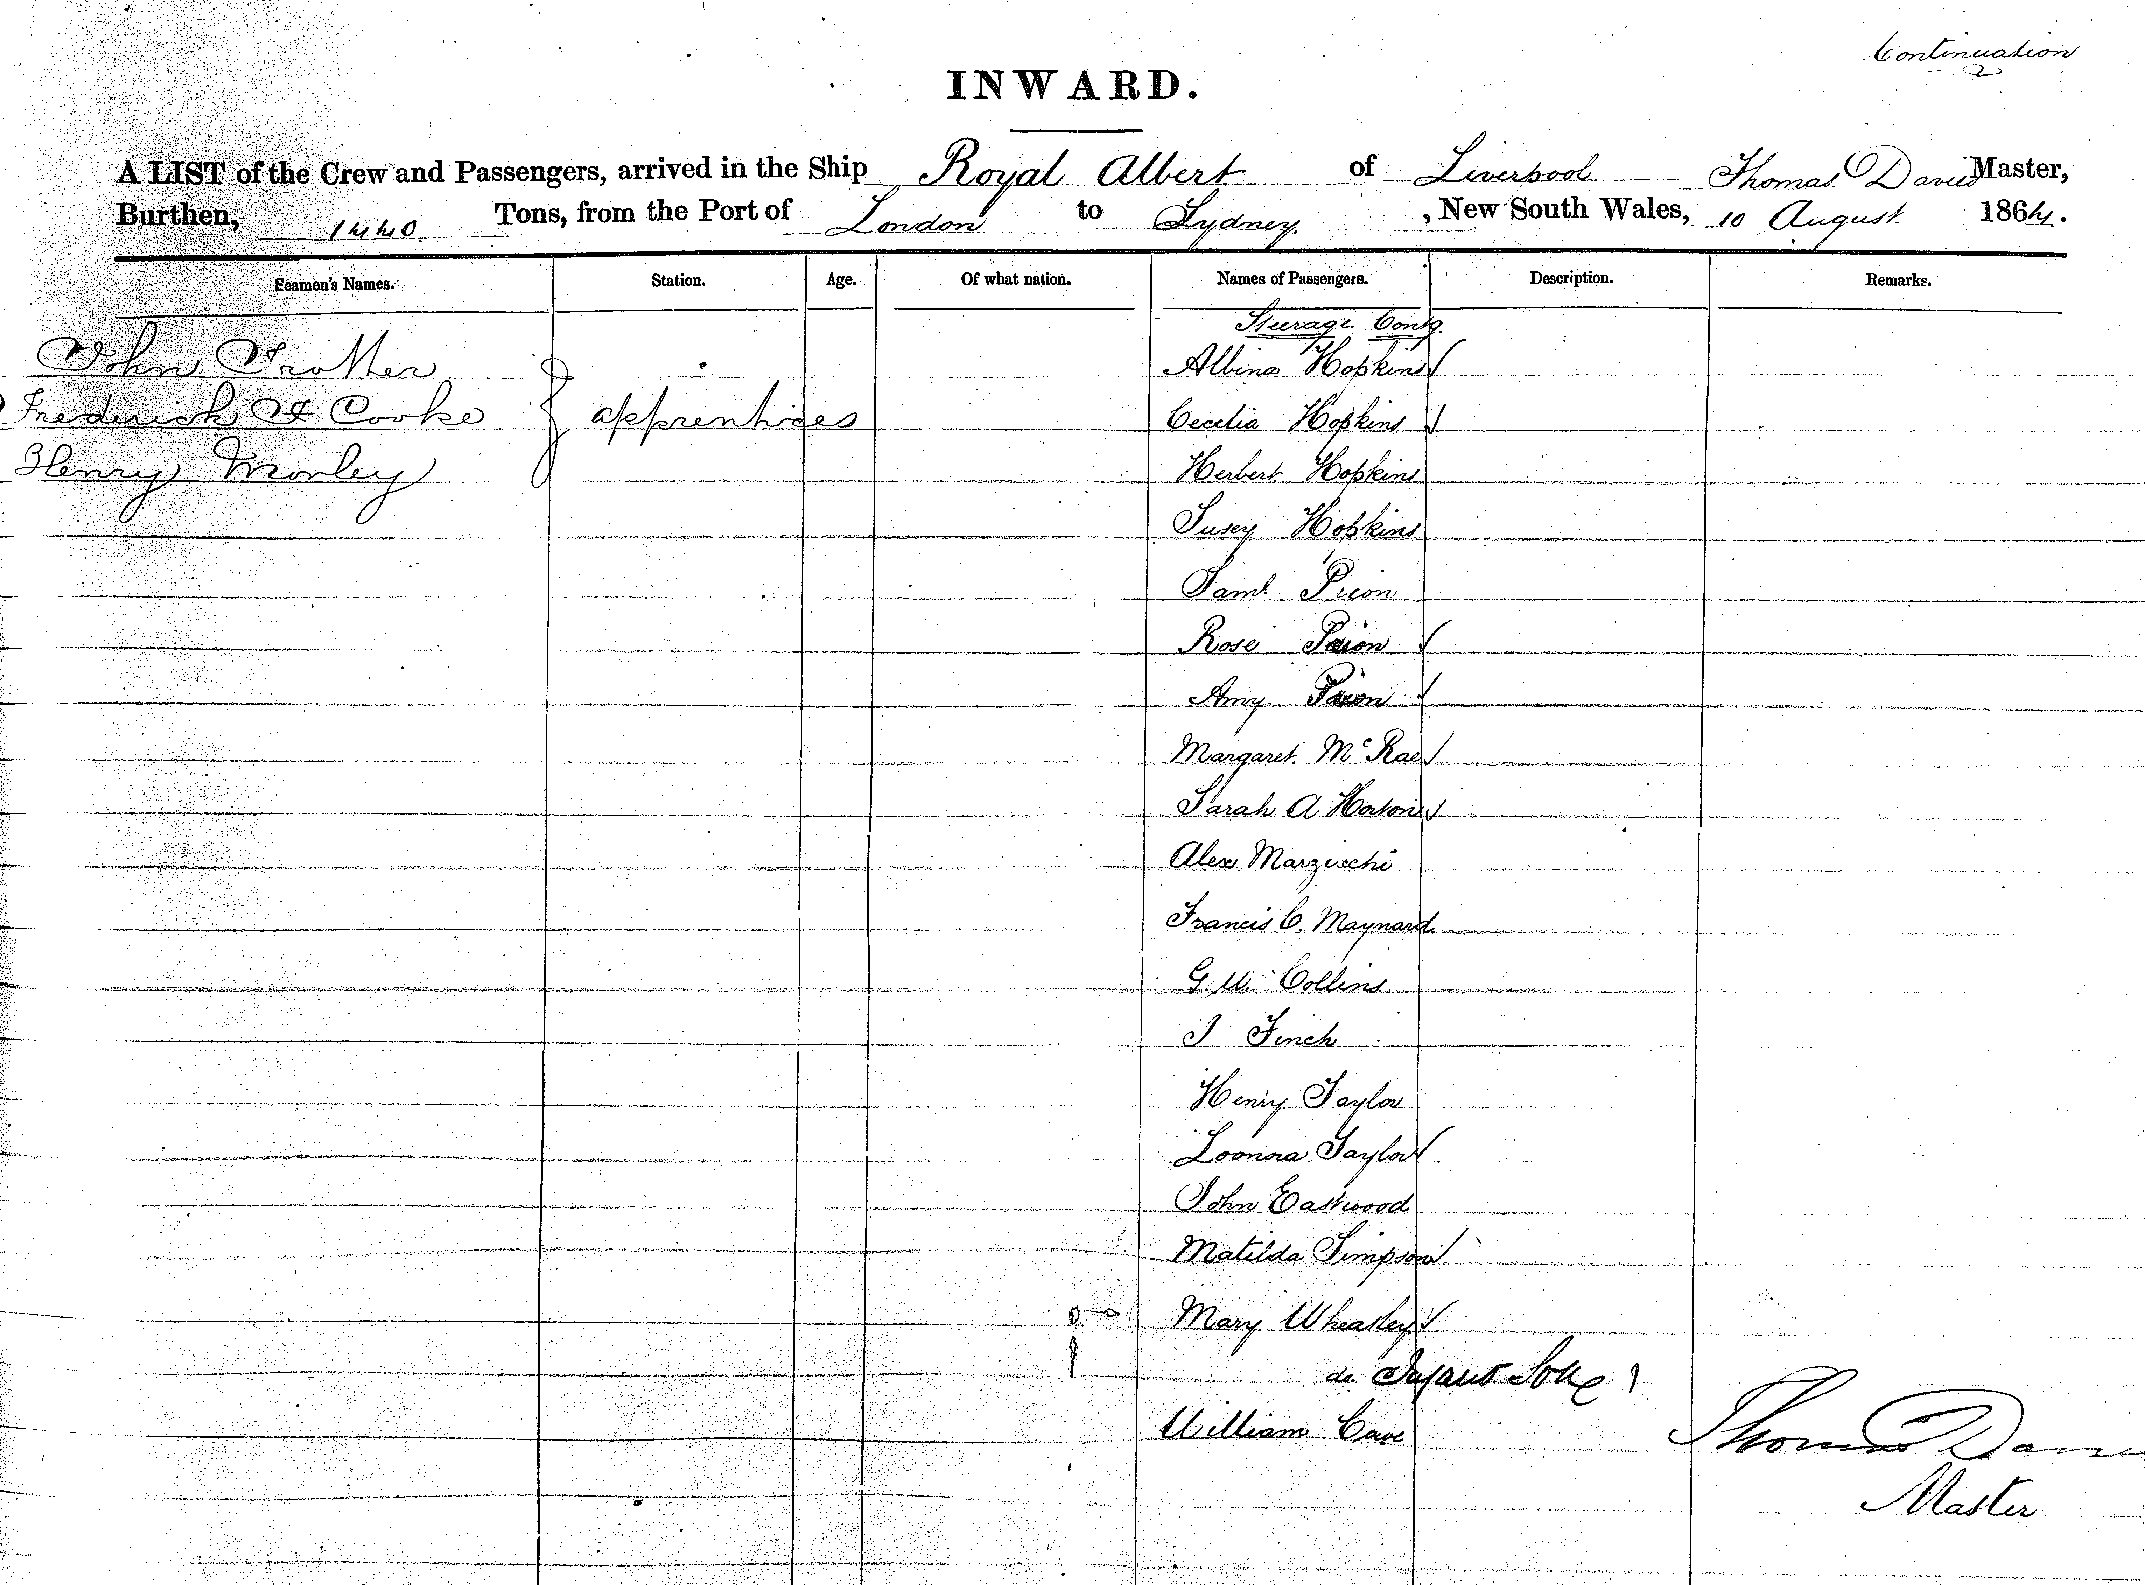 Continuation
INWARD.
A LIST of the Crew and Passengers, arrived in the Ship Royal Albert of Liverpool Thomas Davies Master,
Burthen, 1440 Tons, from the Port of London to Sydney, New South Wales, 10 August 1864.
Seamen's Names. Station. Age. Of what nation. Names of Passengers. Description. Remarks.
Steerage Contg.
John Trotter Albina Hopkins
Frederick Cooke apprentices Cecelia Hopkins
Henry Morley Herbert Hopkins
Susey Hopkins
Saml Prion
Rose Prion
Amy Prion
Margaret McRae
Sarah A Horton
Alex Marzucchi
Francis C. Maynard
G. W. Collins
J Finch
Henry Taylor
Loonora Taylor
John Eastwood
Matilda Simpson
Mary Wheatley
do Infant
William Cave
Thomas Davies
Master